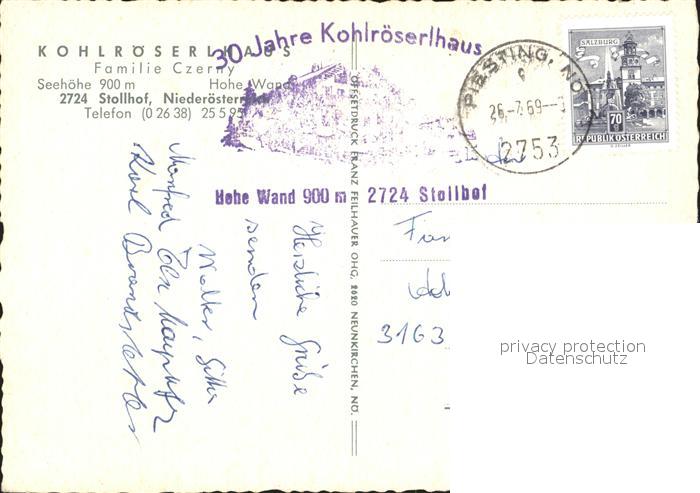 KOHLRÖSERLHAUS
Familie Czerny
Seehöhe 900 m Hohe Wand
2724 Stollhof, Niederösterreich
Telefon (0 26 38) 25 5 95
30 Jahre Kohlröserlhaus
Hohe Wand 900 m 2724 Stollhof
PIESTING, NÖ
2753
SALZBURG
70
REPUBLIK ÖSTERREICH
OFFSETDRUCK FRANZ FEILHAUER OHG, 2620 NEUNKIRCHEN, NÖ.
Herzliche Grüße
senden
Walter,
Manfred
Karl
3163
privacy protection
Datenschutz